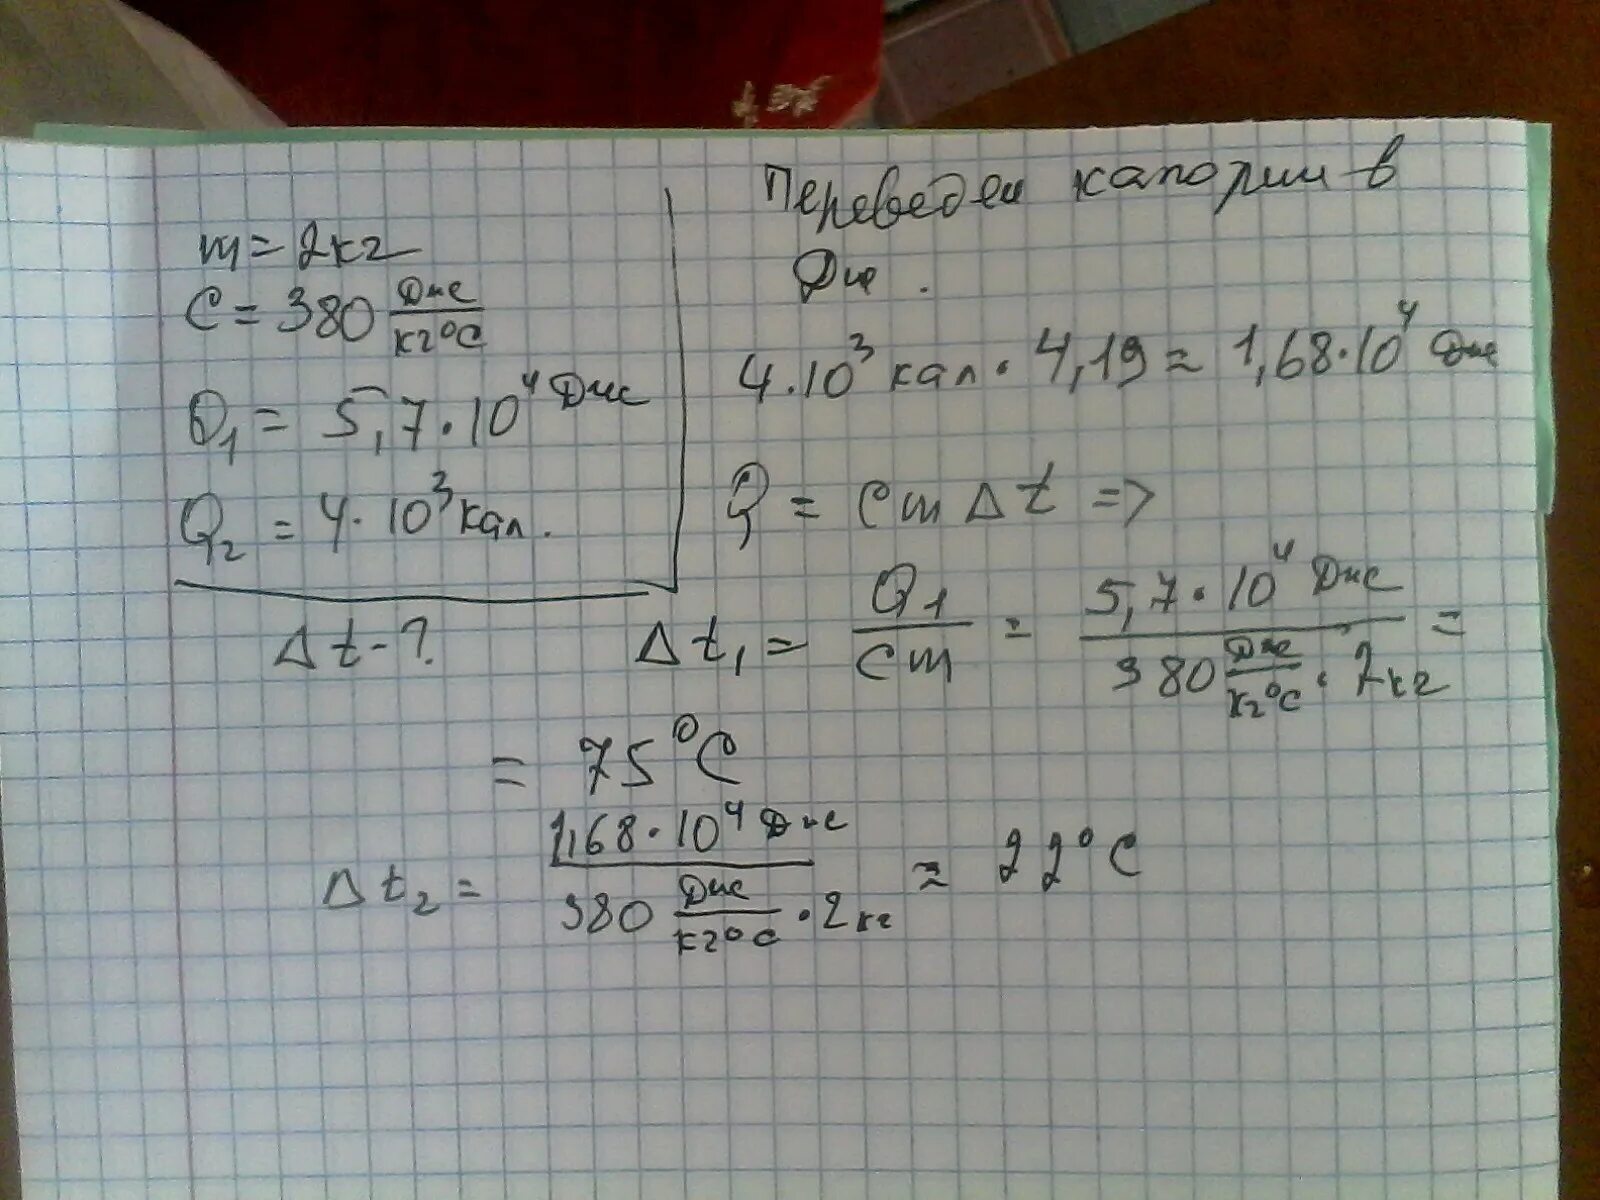 m = 2кг
C = 380 Дж/кг°С
Q₁ = 5,7·10⁴ Дж
Q₂ = 4·10³ кал.
Δt - ?
Переведем калории в
Дж.
4·10³ кал·4,19 ≈ 1,68·10⁴ Дж
Q = cmΔt =>
Δt₁ = Q₁/cm = 5,7·10⁴ Дж / 380 Дж/кг°С · 2кг =
= 75°С
Δt₂ = 1,68·10⁴ Дж / 380 Дж/кг°С · 2кг ≈ 22°С